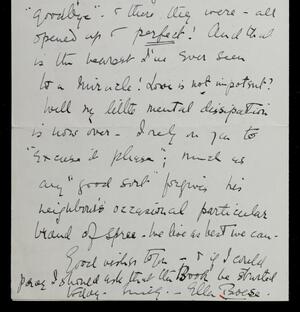 "Goodbye" - & there they were - all
opened up & perfect! And that
is the nearest I've ever seen
to a miracle! Love is not impotent?
Well my little mental dissipation
is now over - I rely on you to
"Excuse it please"; much as
any "good sort" forgives his
neighbour's occasional particular
brand of spree - we live as best we can -
Good wishes to you - & if I could
pray I should ask that the Book be started
today - - Ella Boese.